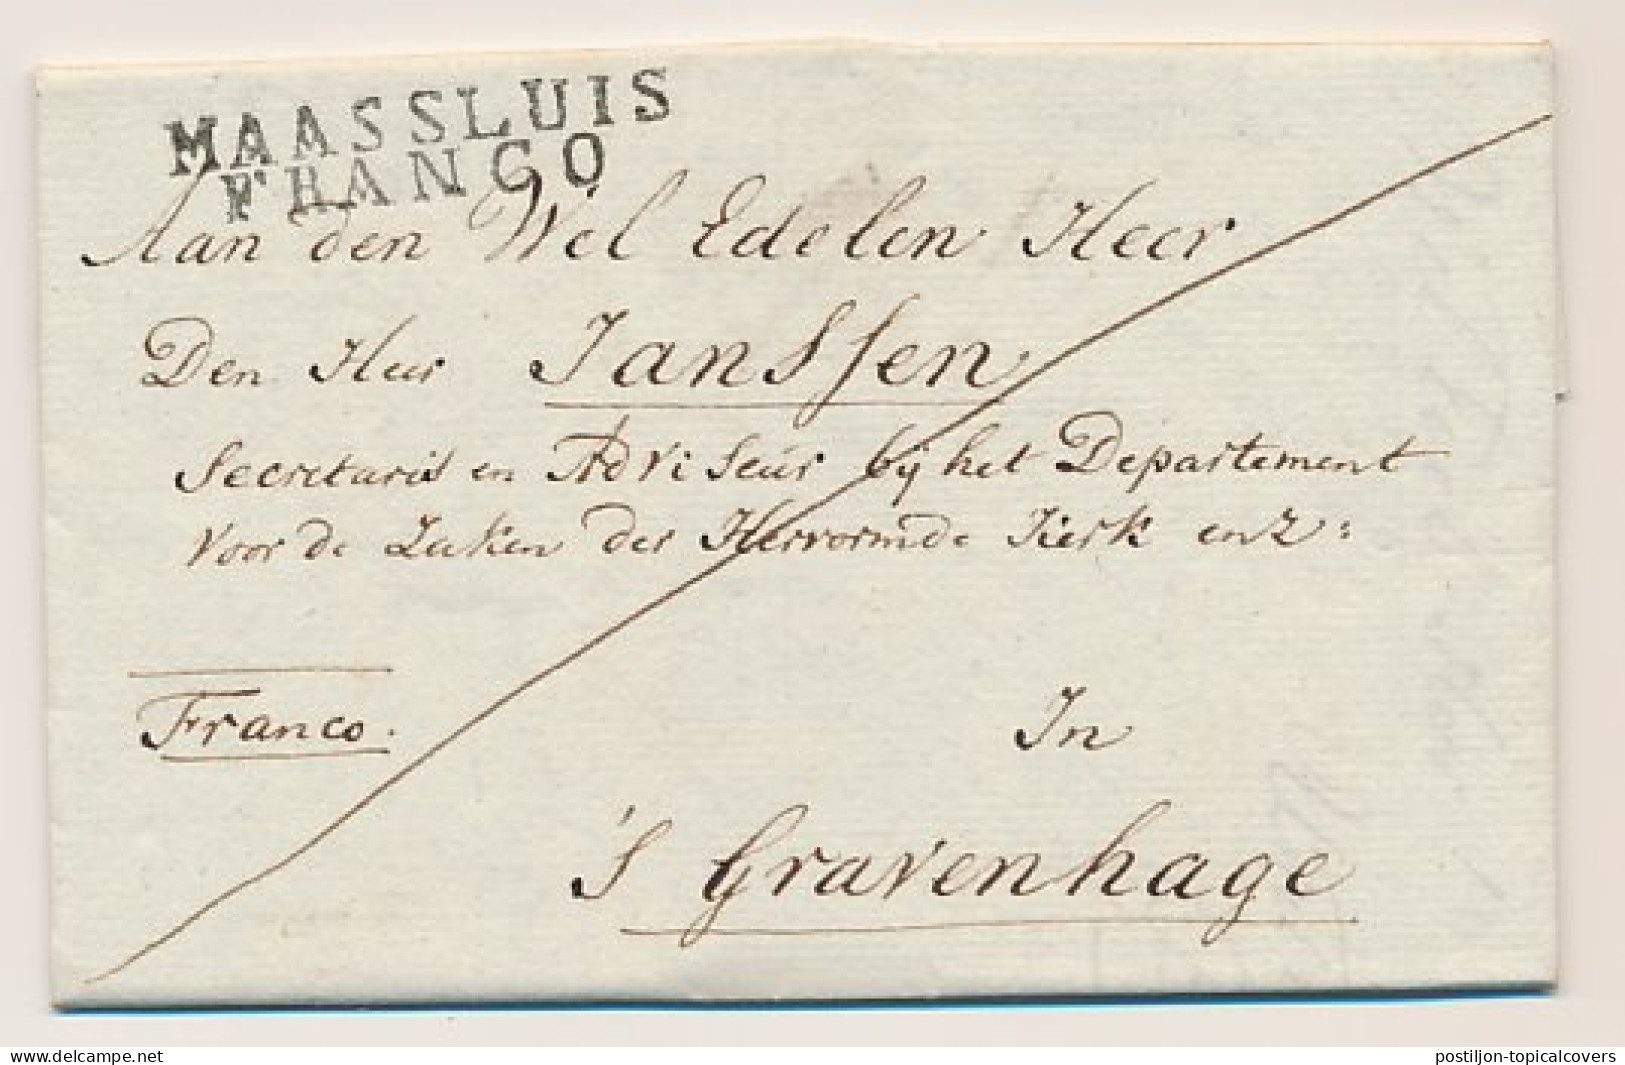 MAASSLUIS
FRANCO
Aan den Wel Edelen Heer
Den Heer Janssen
Secretaris en Adviseur bij het Departement
voor de Zaken der Hervormde Kerk enz:
Franco.
In
's Gravenhage
www.delcampe.net
postiljon-topicalcovers